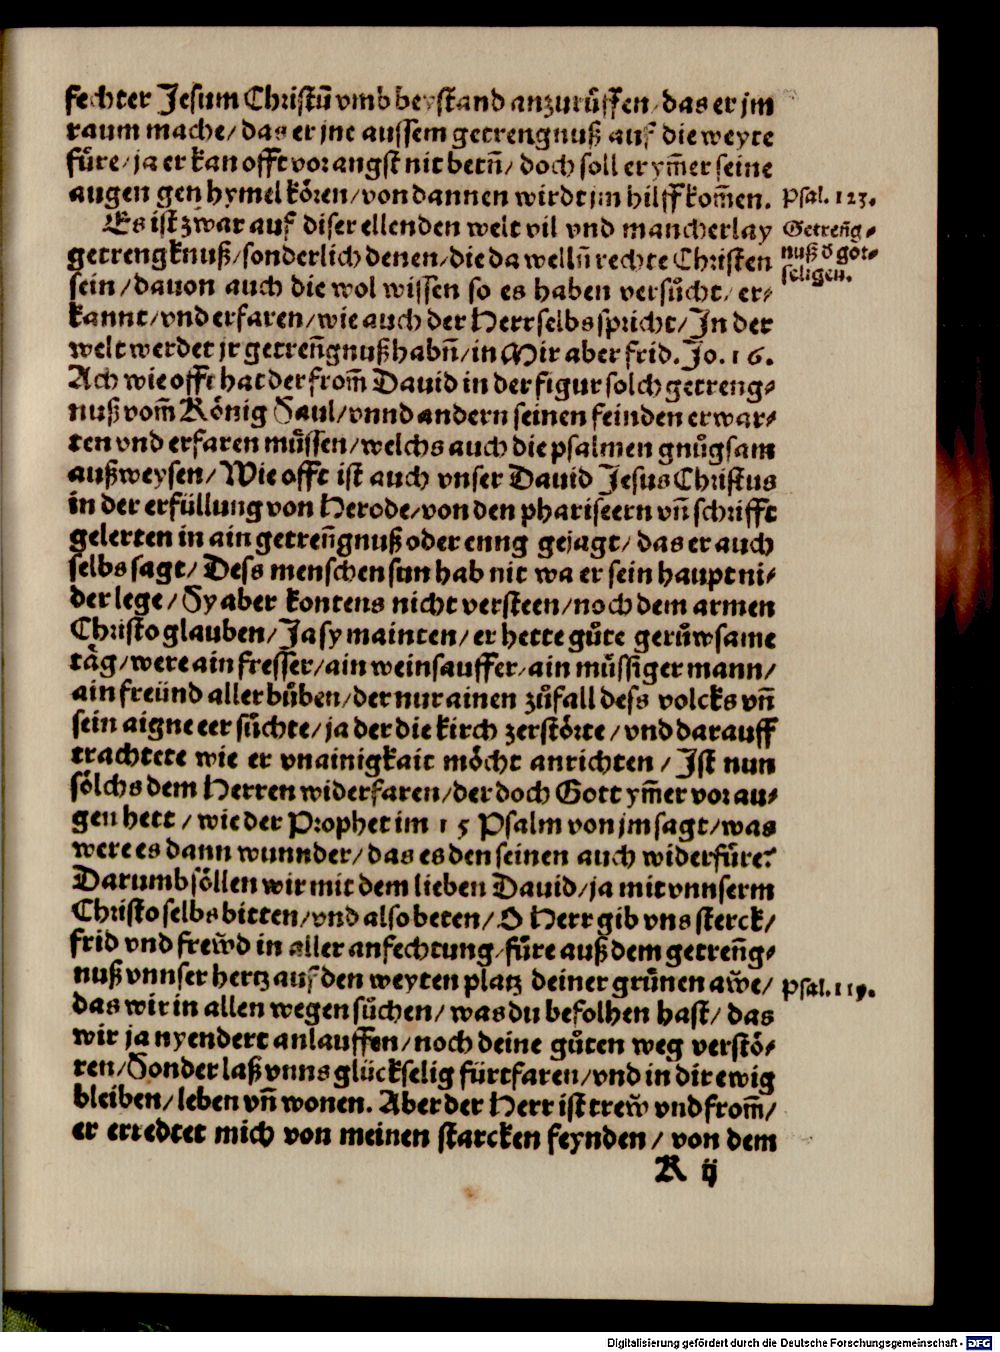 fechter Jesum Christū vmb beystand anzurůffen/ das er jm
raum mache/ das er jne aussem getrengnuß auf die weyte
fůre/ ja er kan offt vor angst nit betn̄/ doch soll er ym̄er seine
augen gen hymel kören/ von dannen wirdt jm hilff kom̄en.
Psal. 123.
Es ist zwar auf diser ellenden welt vil vnd mancherlay
getrengknuß/ sonderlich denen/ die da welln̄ rechte Christen
sein/ dauon auch die wol wissen so es haben versůcht/ er⸗
kannt/ vnd erfaren/ wie auch der Herr selbs spricht/ In der
welt werdet jr getren̄gnuß habn̄/ in Mir aber frid. Jo. 16.
Getren̄g⸗
nuß d̕ got⸗
seligen.
Ach wie offt hat der from̄ Dauid in der figur solch getreng⸗
nuß vom̄ König Saul/ vnnd andern seinen feinden erwar⸗
ten vnd erfaren müssen/ welchs auch die psalmen gnůgsam
außweysen/ Wie offt ist auch vnser Dauid Jesus Christus
in der erfüllung von Herode/ von den phariseern vn̄ schrifft
gelerten in ain getren̄gnuß oder enng gejagt/ das er auch
selbs sagt/ Dess menschen sun hab nit wa er sein haupt ni⸗
der lege/ Sy aber kontens nicht versteen/ noch dem armen
Christo glauben/ Ja sy mainten/ er hette gůte gerůwsame
täg/ were ain fresser/ ain weinsauffer/ ain müssiger mann/
ain freünd aller bůben/ der nur ainen zůfall dess volcks vn̄
sein aigne eer sůchte/ ja der die kirch zerstörte/ vnd darauff
trachtete wie er vnainigkait möcht anrichten/ Ist nun
sölchs dem Herren widerfaren/ der doch Gott ym̄er vor au⸗
gen hett/ wie der Prophet im 15 Psalm von jm sagt/ was
were es dann wunnder/ das es den seinen auch widerfüre?
Darumb söllen wir mit dem lieben Dauid/ ja mit vnnserm
Christo selbs bitten/ vnd also beten/ O Herr gib vns sterck/
frid vnd frew̆d in aller anfechtung/ fůre auß dem getren̄g⸗
nuß vnnser hertz auf den weyten platz deiner grůnen aw̆e/
Psal. 119.
das wir in allen wegen sůchen/ was du befolhen hast/ das
wir ja nyendert anlauffen/ noch deine gůten weg verstö⸗
ren/ Sonder laß vnns glückselig fürtfaren/ vnd in dir ewig
bleiben/ leben vn̄ wonen. Aber der Herr ist trew̆ vnd from̄/
er erredtet mich von meinen starcken feynden/ von dem
R ij
Digitalisierung gefördert durch die Deutsche Forschungsgemeinschaft - DFG